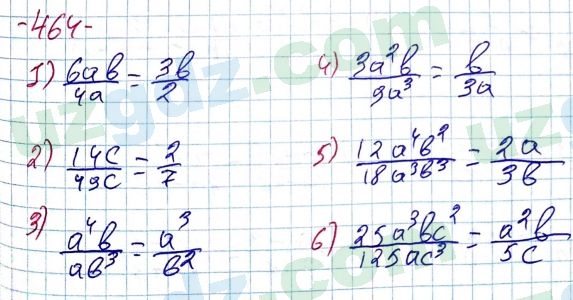 -464-
1) 6ab/4a = 3b/2
2) 14c/49c = 2/7
3) a⁴b/ab³ = a³/b²
4) 3a²b/9a³ = b/3a
5) 12a⁴b²/18a³b³ = 2a/3b
6) 25a³bc²/125ac³ = a²b/5c
uzgdz.com